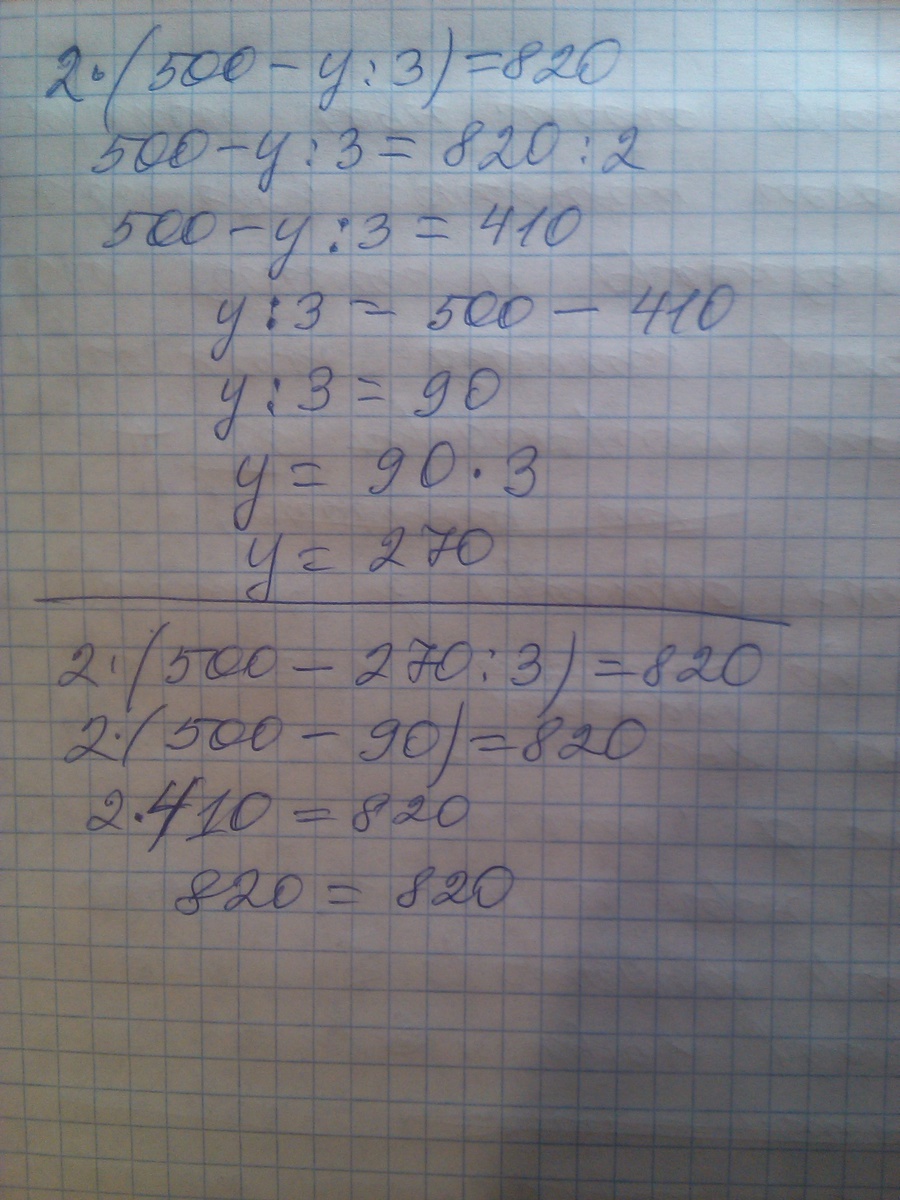 2·(500-y:3)=820
500-y:3=820:2
500-y:3=410
y:3=500-410
y:3=90
y=90·3
y=270
2·(500-270:3)=820
2·(500-90)=820
2·410=820
820=820